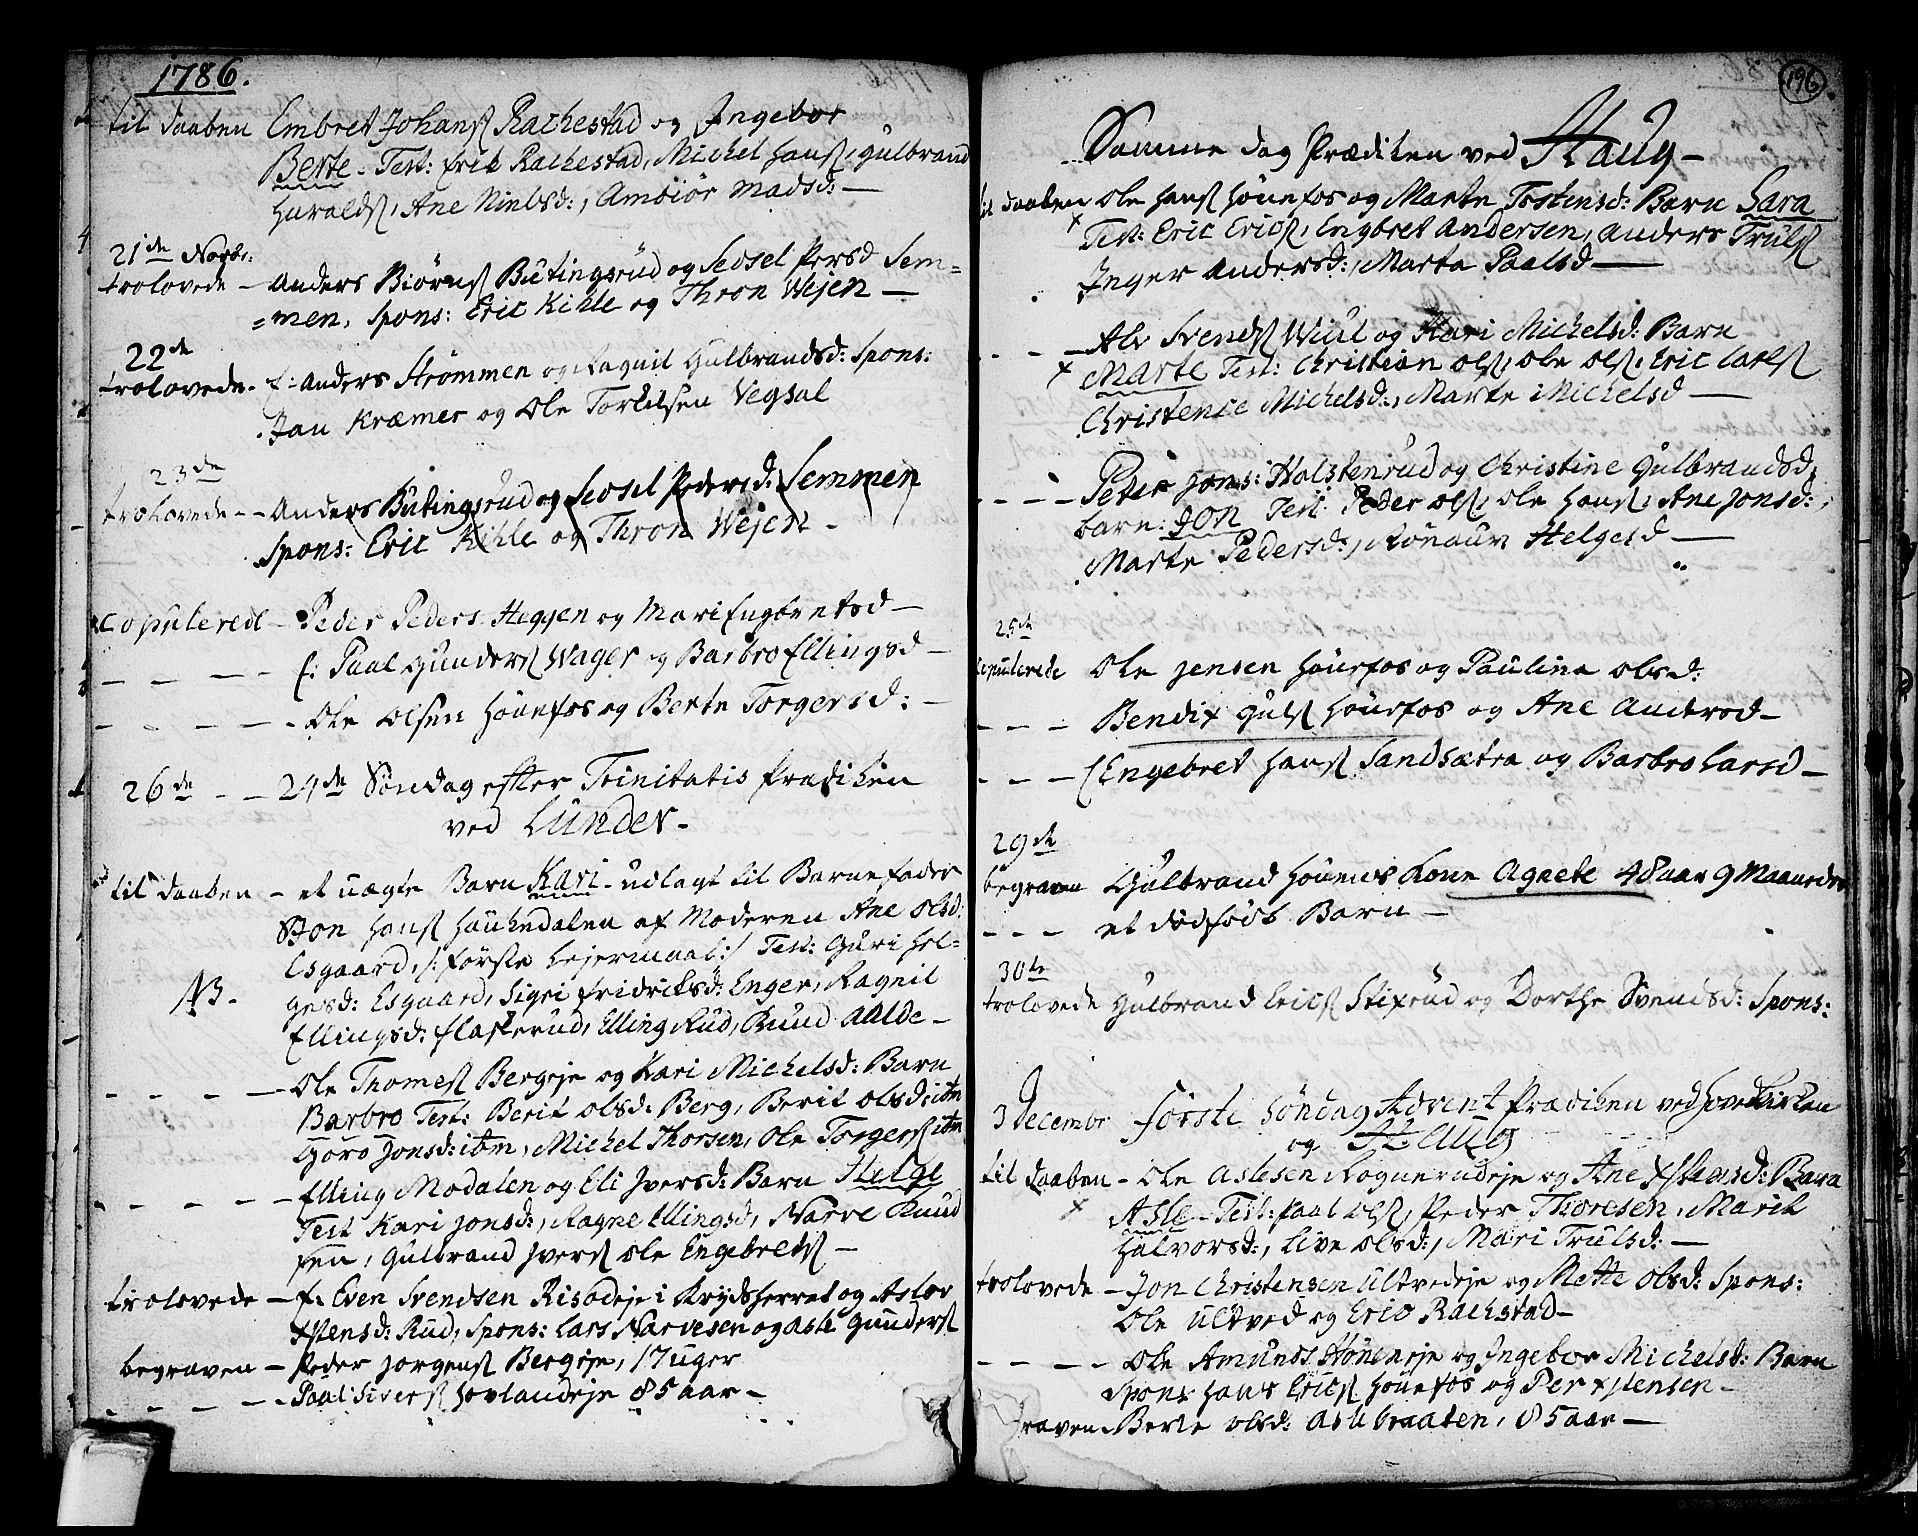 1786.
til daaben Embret Johans Rachestad og Ingebor
Berte - Test: Erik Rachestad, Michel Hans, Gulbrand
Haralds, Ane Nielsd:, Ambiör Madsd: —
21de Novbr:
trolovede - Anders Biörns Butingsrud og Sedsel Persd Sem=
=men, Spons: Eric Kihle og Thron Vejen —
22de
trolovede - f: Anders Strömmen og Ragnil Gulbrandsd: Spons:
Jan Kræmer og Ole Torkilsen Vegsal
23de
trolovede - - Anders Butingsrud og Sedsel Pedersd: Semmen
Spons: Eric Kihle og Thron Wejen -
copulerede - Peder Peders Heggen og Mari Engbretsd —
- - - - f: Paal Gunders Wager og Barbro Ellingsd —
- - - - - Ole Olsen Hönefos og Berte Torgersd: —
26de - - 24de Söndag efter Trinitatis Prædiken
ved Lunder -
til daaben - et uægte Barn Kari - udlagt til Barnefader
Jon Hans Haukedalen af Moderen Ane Olsd:
Esgaard, /: förste Lejermaal :/ Test: Guri Hel-
NB. gesd: Esgaard, Sigri Fridriksd: Enger, Ragnil
Ellingsd: Flaskerud, Elling Rud, Knud Aalde -
- - - - Ole Thomes Bergeje og Kari Michelsd: Barn
Barbro Test: Berit Olsd: Berg, Berit Olsd: itm
Goro Jonsd: itm, Michel Thorsen, Ole Torgers itm
- - - - Elling Modalen og Eli Iversd: Barn Helge
Test Kari Jonsd:, Ragne Ellingsd, Narve Knud
sen, Gulbrand Ivers Ole Engebrets —
trolovede - f: Even Svendsen Risodeje i Krydsherret og Aslov
Xstensd: Rud, Spons: Lars Narvesen og Asle Gunders
begraven - Peder Jorgens Bergeje, 17 uger
- - - - Paal Sivers Hovlandeje 85 aar -
196
Samme dag Prædiken ved Haug -
til daaben Ole Hans Hönefos og Marte Tostensd: Barn Sara
x Test: Eric Erics, Engbret Andersen, Anders Truls
Inger Andersd:, Marta Paalsd —
- - - Svends Wiul og Kari Michelsd: Barn
x Marte Test: Christian Ols, Ole Ols, Eric Carls
Christense Michelsd:, Marte Michelsd —
- - - - Peder Jons: Holstenrud og Christine Gulbrandsd,
barn: Jon Test: Peder Ols, Ole Hans, Ane Jonsd:,
Marte Pedersd:, Rönauv Helgesd —
25de
copulerede Ole Jensen Hönefos og Paulina Olsd:
- - - Bendix Guls Hönefos og Ane Andersd -
- - - Engebret Hans Sandsætra og Barbro Larsd -
29de
begraven Gulbrand Hönens Kone Agnete 48 aar 9 Maaneder
- - - et dödföd Barn —
30te
trolovede Gulbrand Erics Stixrud og Dorthe Svendsd: Spons:
3 Decembr Förste Söndag Advent Prædiken ved Hovedkirken
og Haug
til daaben - Ole Aslesen Rognerudeje og Ane Xstensd: Barn
x Asle - Test: Paal Ols, Peder Thoresen, Marit
Halvorsd:, Live Olsd:, Mari Trulsd: —
trolovede - Jon Christensen Ultvedeje og Mette Olsd: Spons:
Ole Ultved og Eric Rachstad -
- - - - Ole Amunds Höneneje og Ingebor Michelsd: Barn
Spons Hans Erics Hönefos og Per Xstensen -
raven Berte Olsd: Askbraaten, 85 aar —